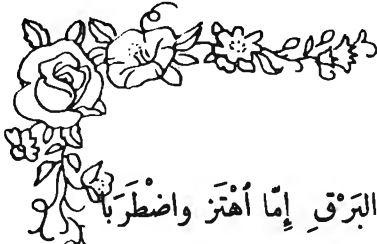 البَرْقِ إِمّا اُهْتَز واضْطَرَبا